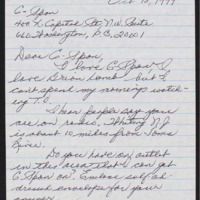 Oct 10, 1999
C-Span
400 N. Capitol St. N.W. Suite
650 Washington, D.C. 20001
Dear C-Span,
I love C-Span. I
love Brian Lamb but I
can't spend my evenings watch-
ing T.V.
I hear people say you
are on radio. Whiting N.J.
is about 10 miles from Toms
River.
Do you have any outlet
in this area that I can get
C-Span on? Enclose self ad-
dressed envelope for your
answer.